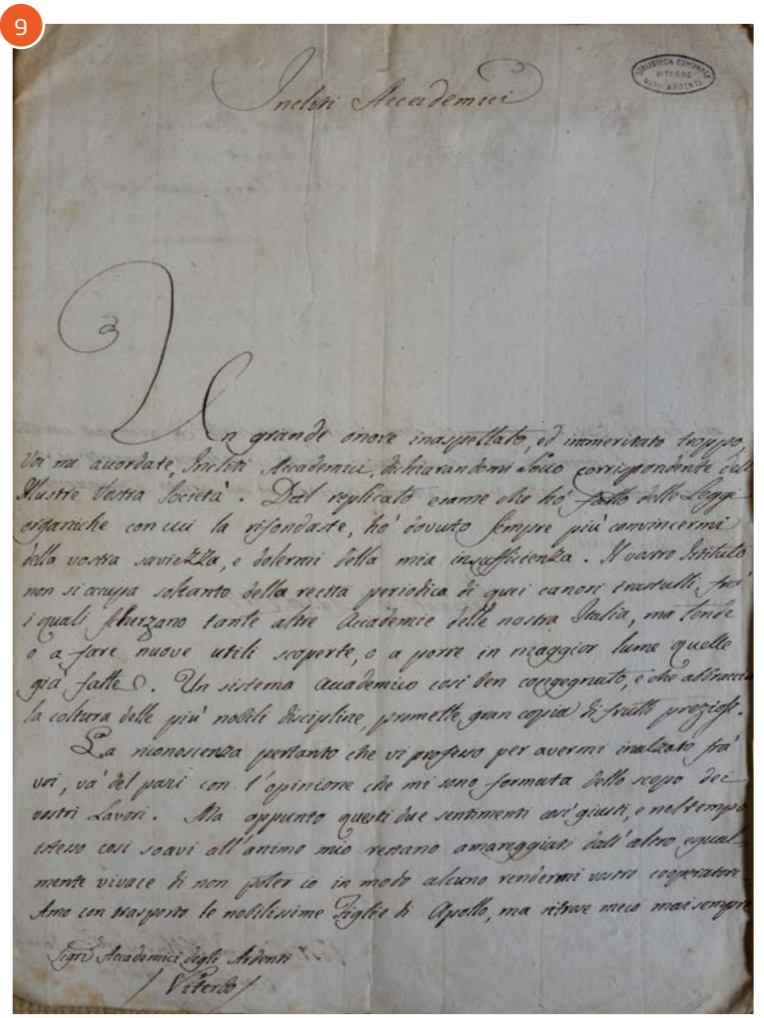 9
BIBLIOTECA COMUNALE
VITERBO
DEGLI ARDENTI
Incliti Accademici
Un grande onore inaspettato, ed immeritato troppo,
Voi mi accordate, Incliti Accademici, dichiarandomi Socio corrispondente dell'
Illustre Vostra Società. Dal replicato esame che hò fatto delle Leggi
organiche con cui la rifondaste, hò dovuto sempre più convincermi
della vostra saviezza, e dolermi della mia insufficienza. Il vostro Istituto
non si occupa soltanto della recita periodica di quei canori trastulli, frà
i quali scherzano tante altre Accademie della nostra Italia, ma tende
o a fare nuove utili scoperte, o a porre in maggior lume quelle
già fatte. Un sistema accademico così ben congegnato, e che abbraccia
la coltura delle più nobili discipline, promette gran copia di frutti preziosi.
La riconoscenza pertanto che vi professo per avermi inalzato frà
voi, và del pari con l'opinione che mi sono formata dello scopo dei
vostri Lavori. Ma appunto questi due sentimenti così giusti, e nel tempo
istesso così soavi all'animo mio restano amareggiati dall'altro egual-
mente vivace di non poter io in modo alcuno rendermi vostro cooperatore.
Amo con trasporto le nobilissime Figlie di Apollo, ma ritrovo meco mai sempre
Sigri Accademici degli Ardenti
/ Viterbo /